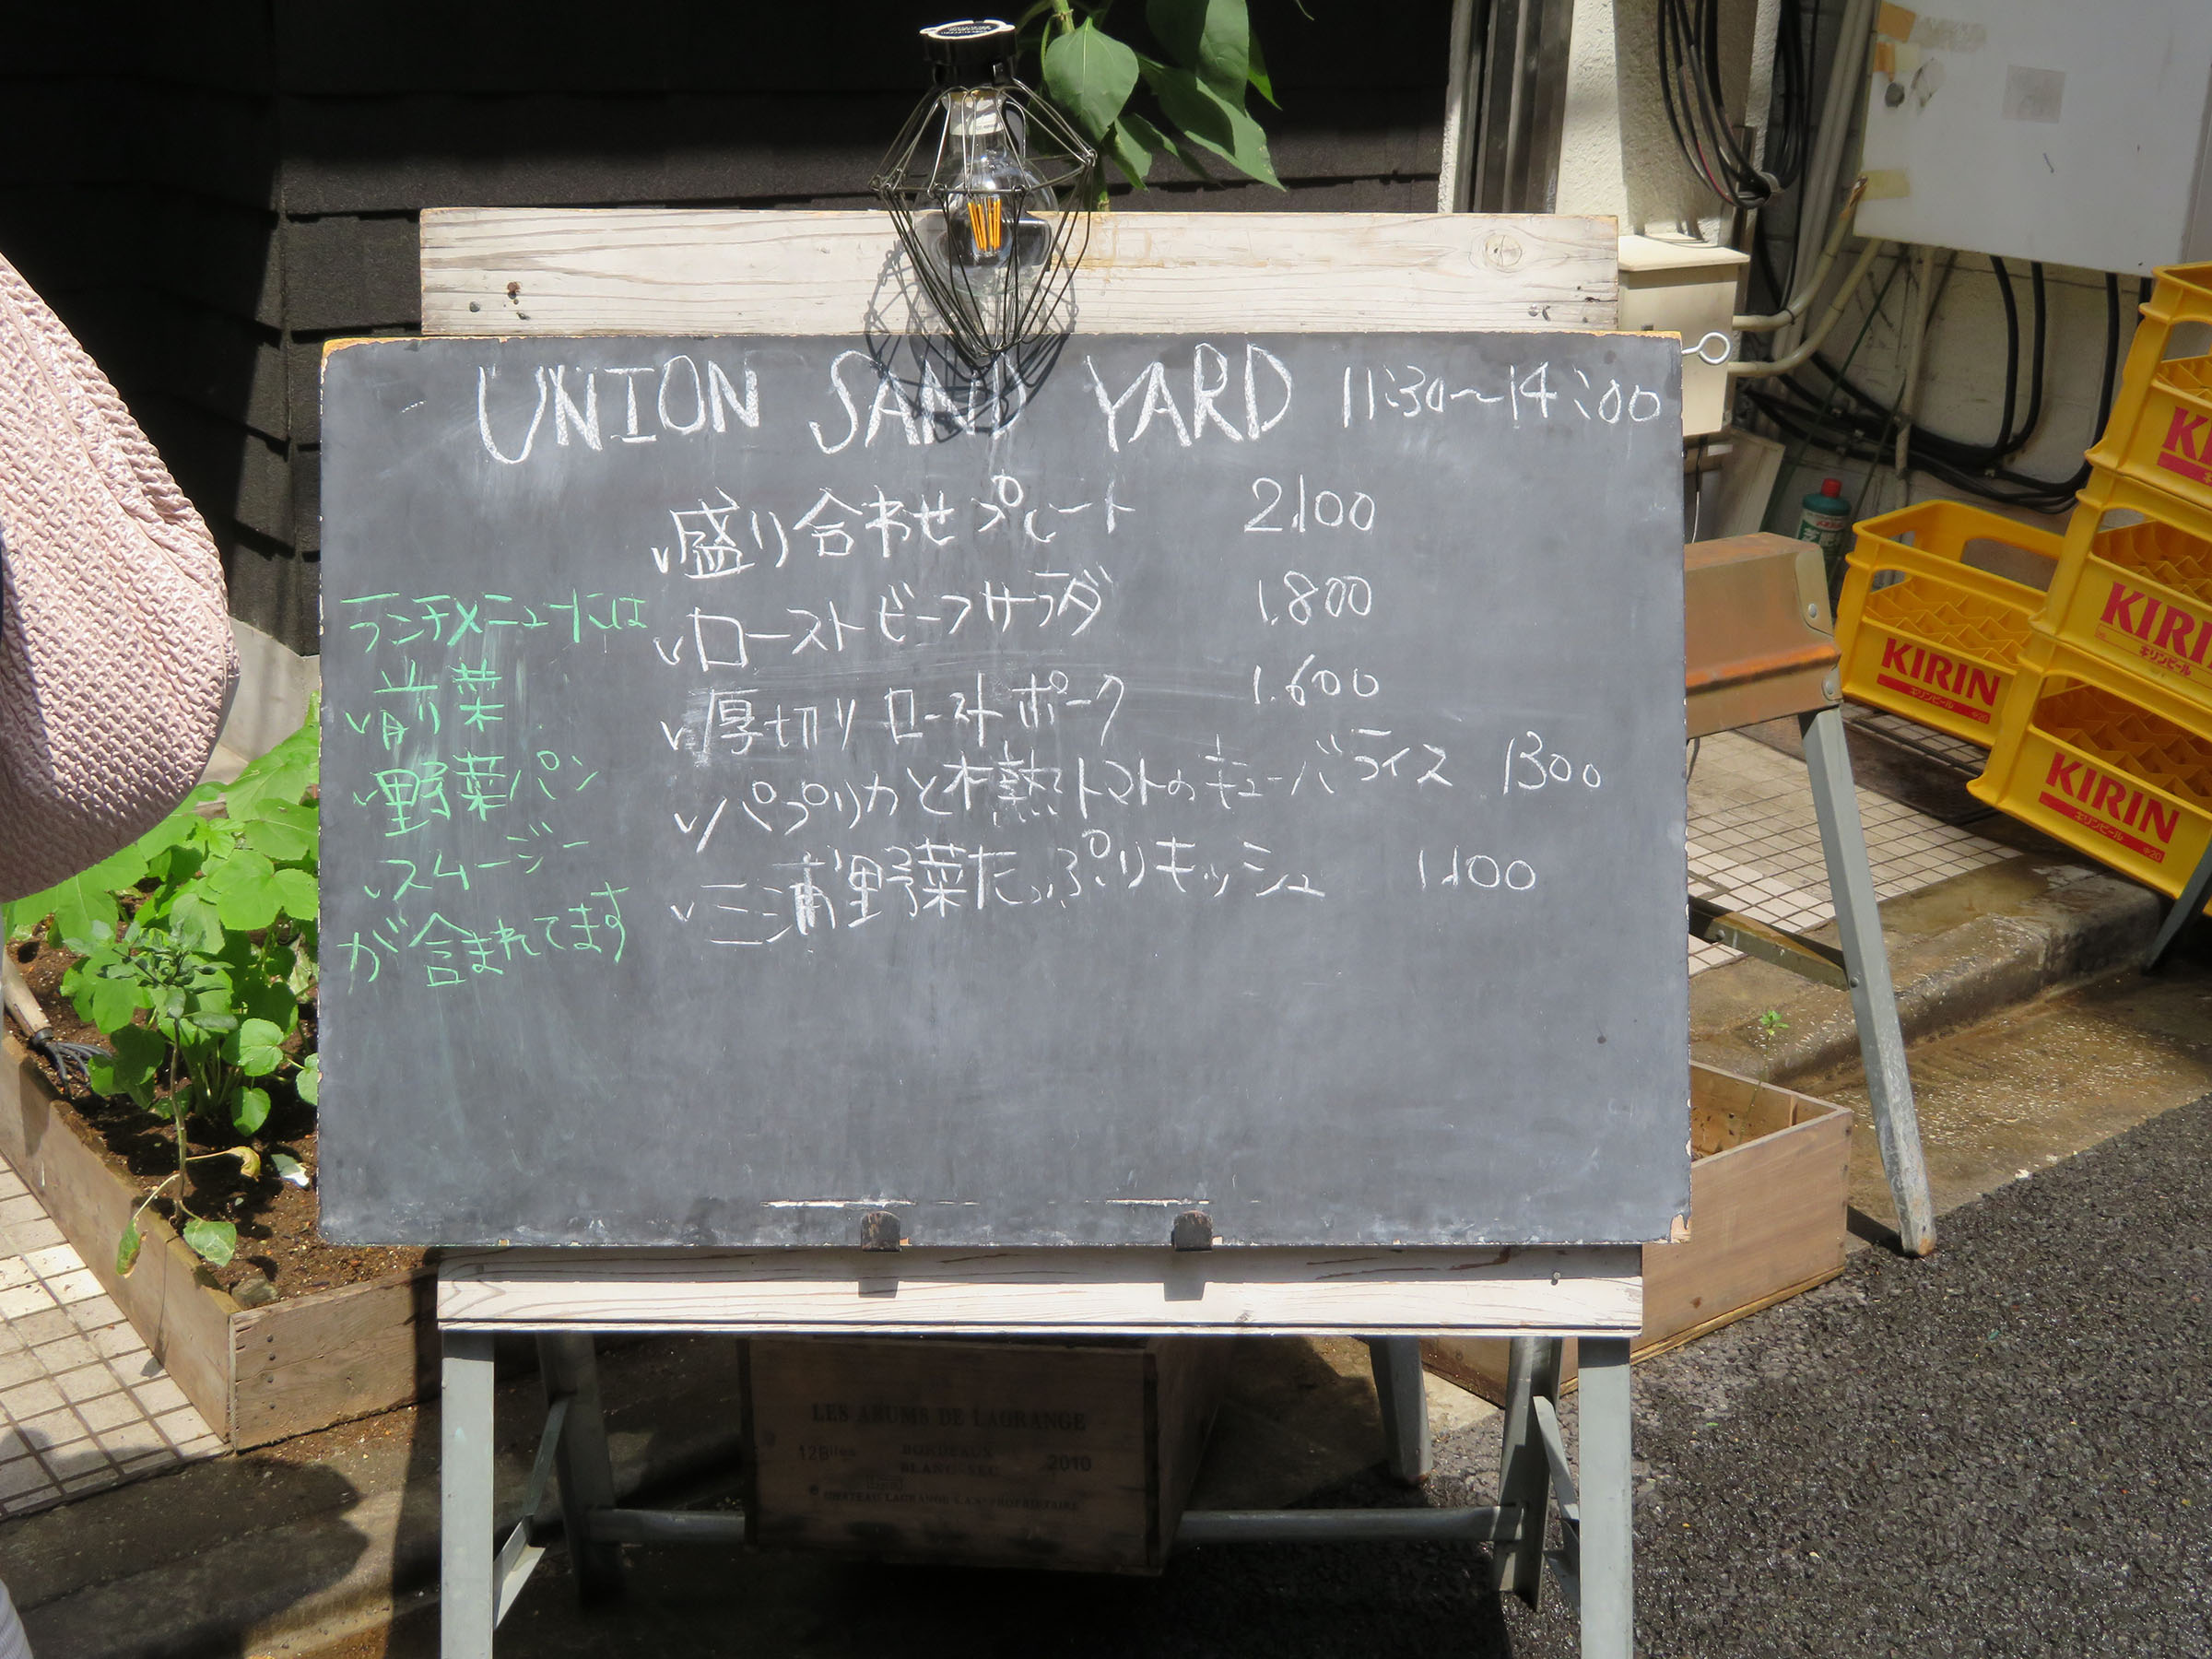 UNION SAND YARD 11:30〜14:00
✓盛り合わせプレート 2.100
✓ローストビーフサラダ 1.800
✓厚切りローストポーク 1.600
✓パプリカと木熟トマトのキューバライス 1300
✓三浦野菜たっぷりキッシュ 1.100
ランチメニューには
✓前菜
✓野菜パン
✓スムージー
が含まれてます
KIRIN
キリンビール
KIRIN
キリンビール
KIRIN
キリンビール
LES ARUMS DE LAGRANGE
12Btles BORDEAUX 2010
BLANC SEC